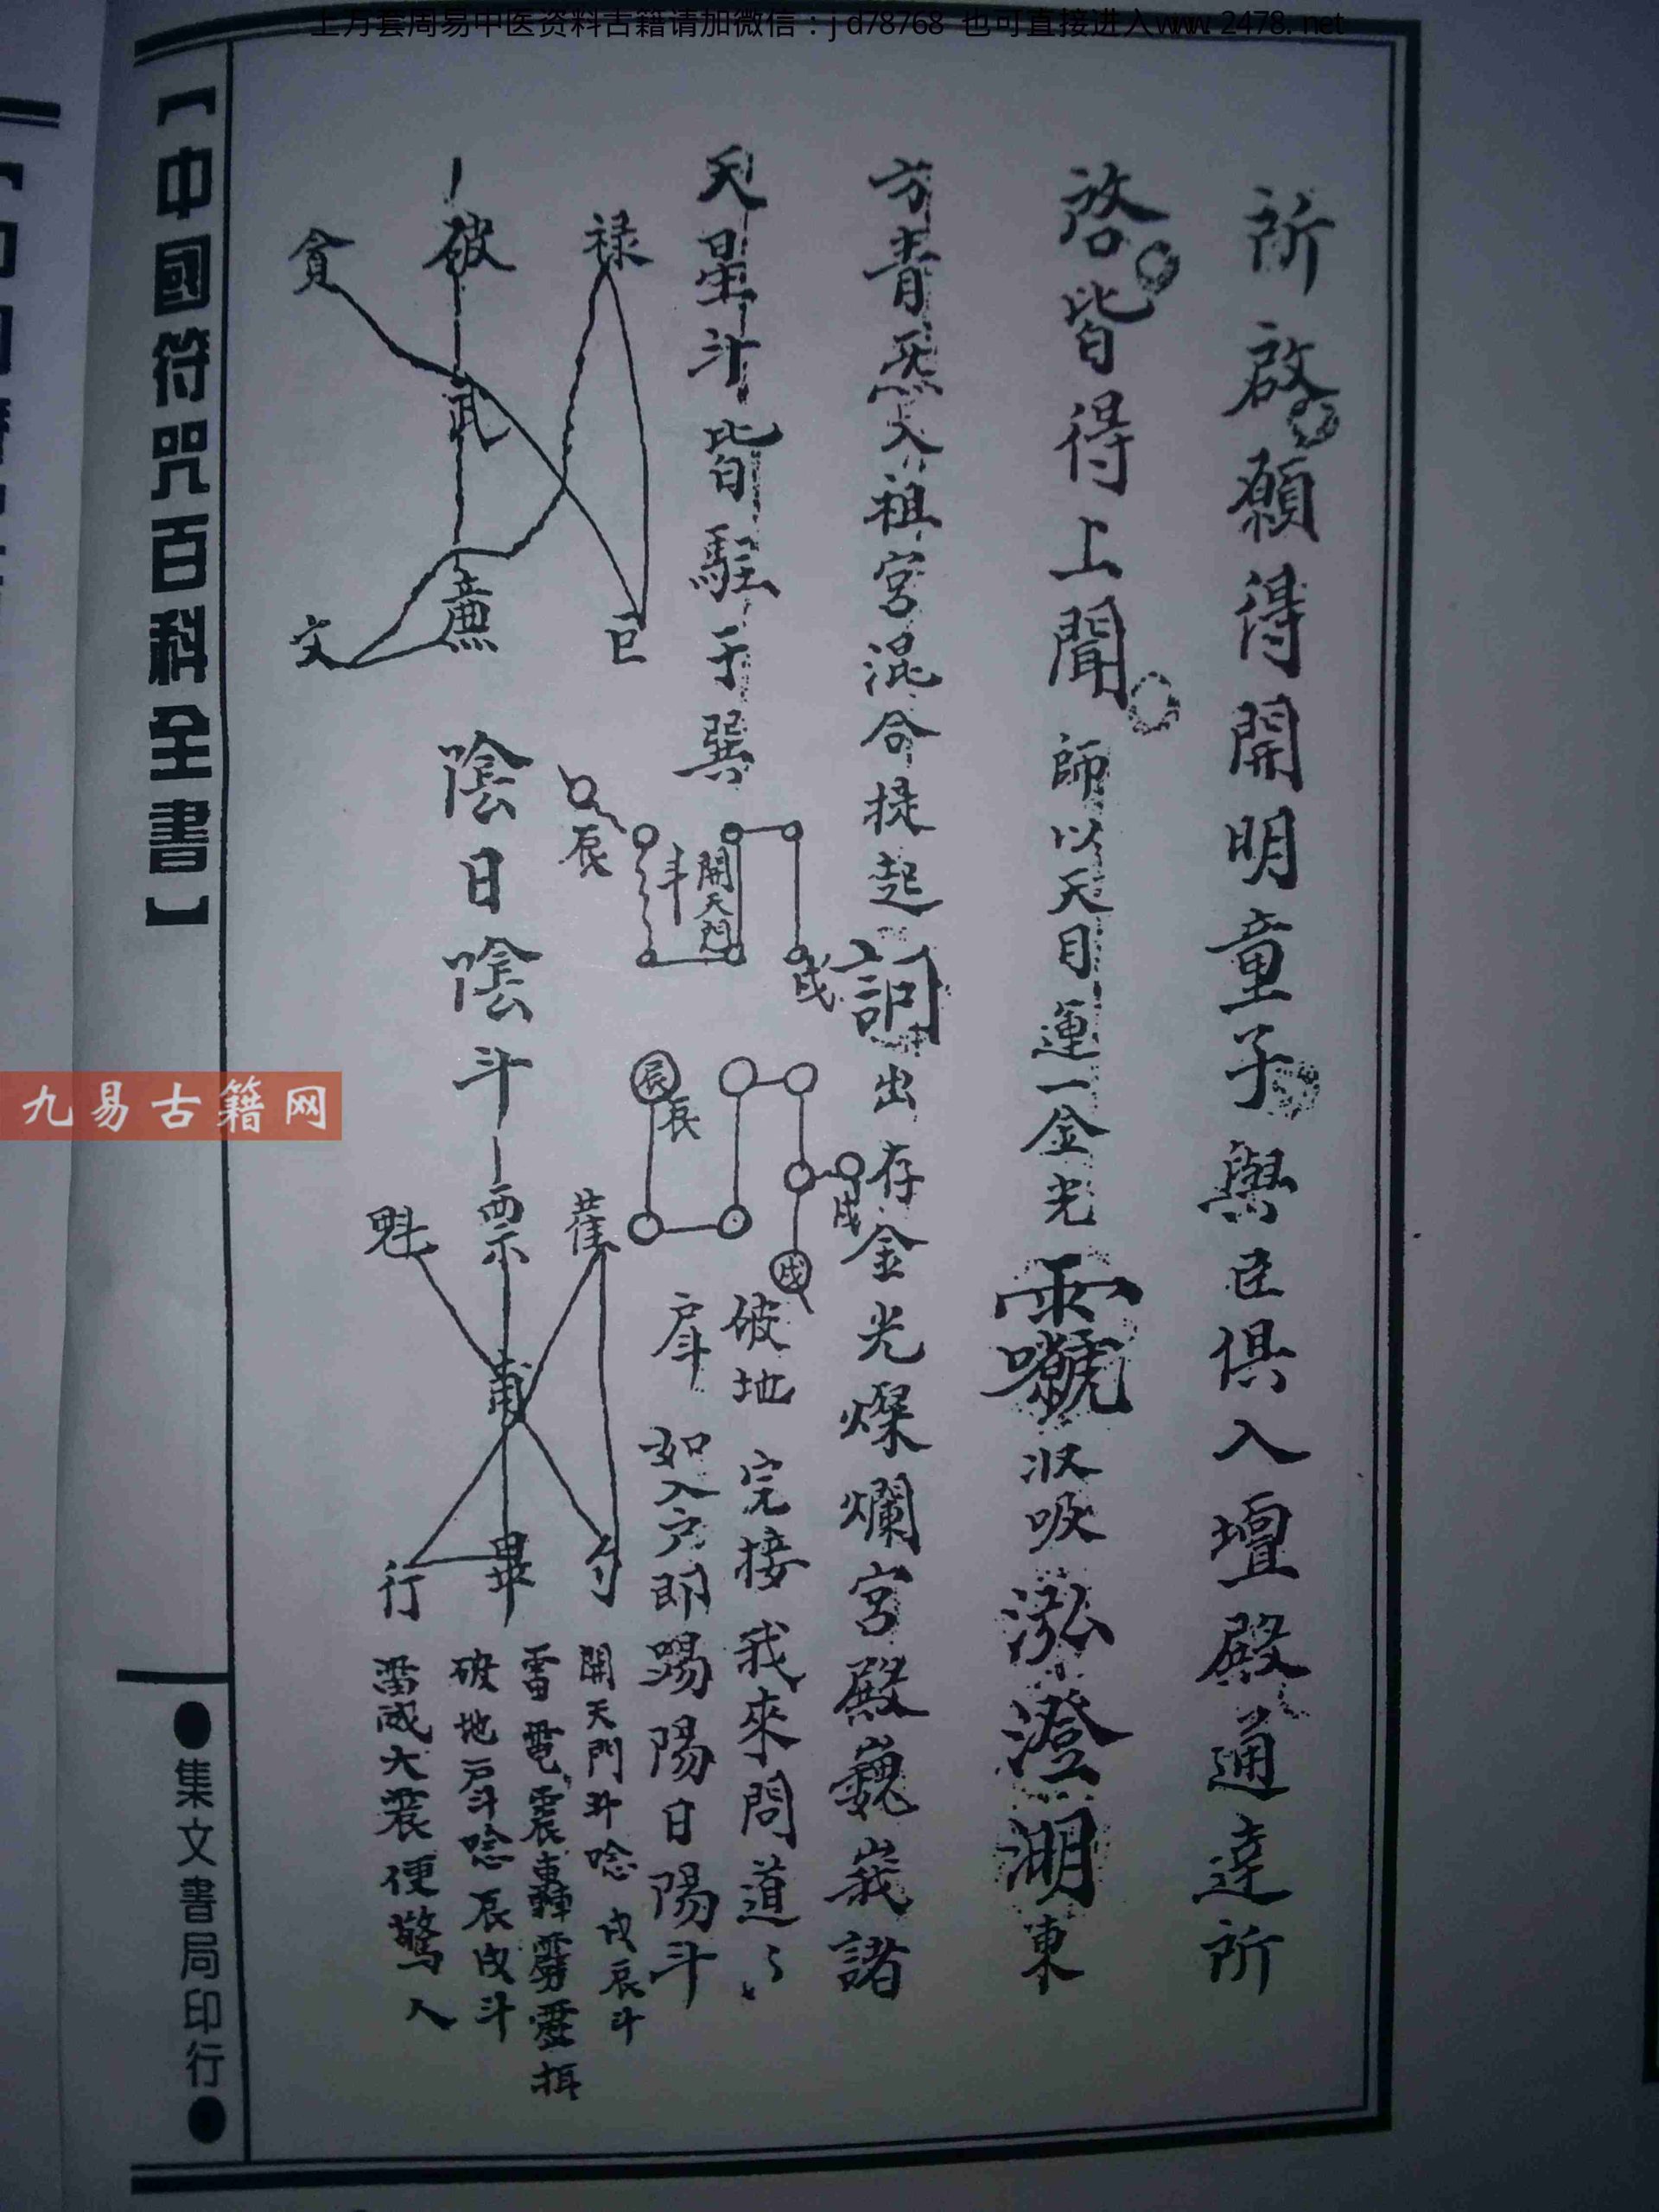 上万套周易中医资料古籍请加微信:jd78768 也可直接进入www.2478.net
所啟願得開明童子與臣俱入壇殿通達所
啓皆得上聞 師以天目運一金光 収吸泓澄湖東
方青炁入祖宮混合提起 出存金光燦爛宮殿巍峩諸
天星斗皆駐于巽
開天門
斗
辰
戌
辰
辰
戌
戌
破地 完接我來問道
戽 如入户即踢陽日陽斗
祿
破
貪
武
廉
文
巳
陰日陰斗
雚
票
魁
甫
行
畢
勺
開天門斗唸戌辰斗
雷電震轟轉
破地户斗唸辰戌斗
大震便驚人
【中國符咒百科全書】
●集文書局印行●
九易古籍网